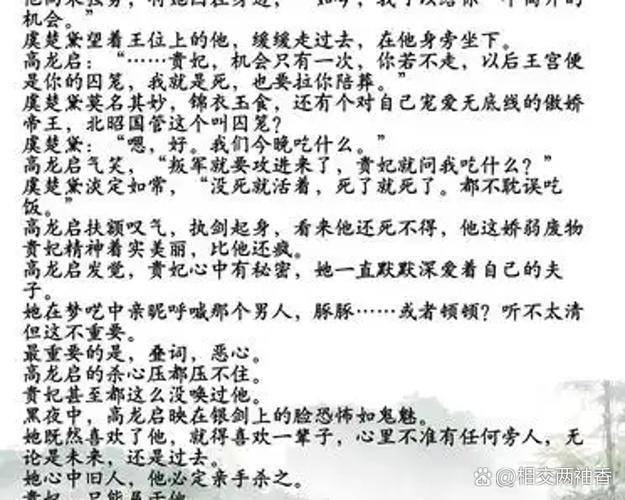 机会。”
虞楚黛望着王位上的他，缓缓走过去，在他身旁坐下。
高龙启：“……贵妃，机会只有一次，你若不走，以后王宫便
是你的囚笼，我就是死，也要拉你陪葬。”
虞楚黛莫名其妙，锦衣玉食，还有个对自己宠爱无底线的傲娇
帝王，北昭国管这个叫囚笼？
虞楚黛：“嗯，好。我们今晚吃什么。”
高龙启气笑，“叛军就要攻进来了，贵妃就问我吃什么？”
虞楚黛淡定如常，“没死就活着，死了就死了。都不耽误吃
饭。”
高龙启扶额叹气，执剑起身，看来他还死不得，他这娇弱废物
贵妃精神着实美丽，比他还疯。
高龙启发觉，贵妃心中有秘密，她一直默默深爱着自己的夫
子。
她在梦呓中亲昵呼喊那个男人，豚豚……或者顿顿？听不太清
但这不重要。
最重要的是，叠词，恶心。
高龙启的杀心压都压不住。
贵妃甚至都这么没唤过他。
黑夜中，高龙启映在银剑上的脸恐怖如鬼魅。
她既然喜欢了他，就得喜欢一辈子，心里不准有任何旁人，无
论是未来，还是过去。
她心中旧人，他必定亲手杀之。
贵妃，只能属于他
相交两袖香